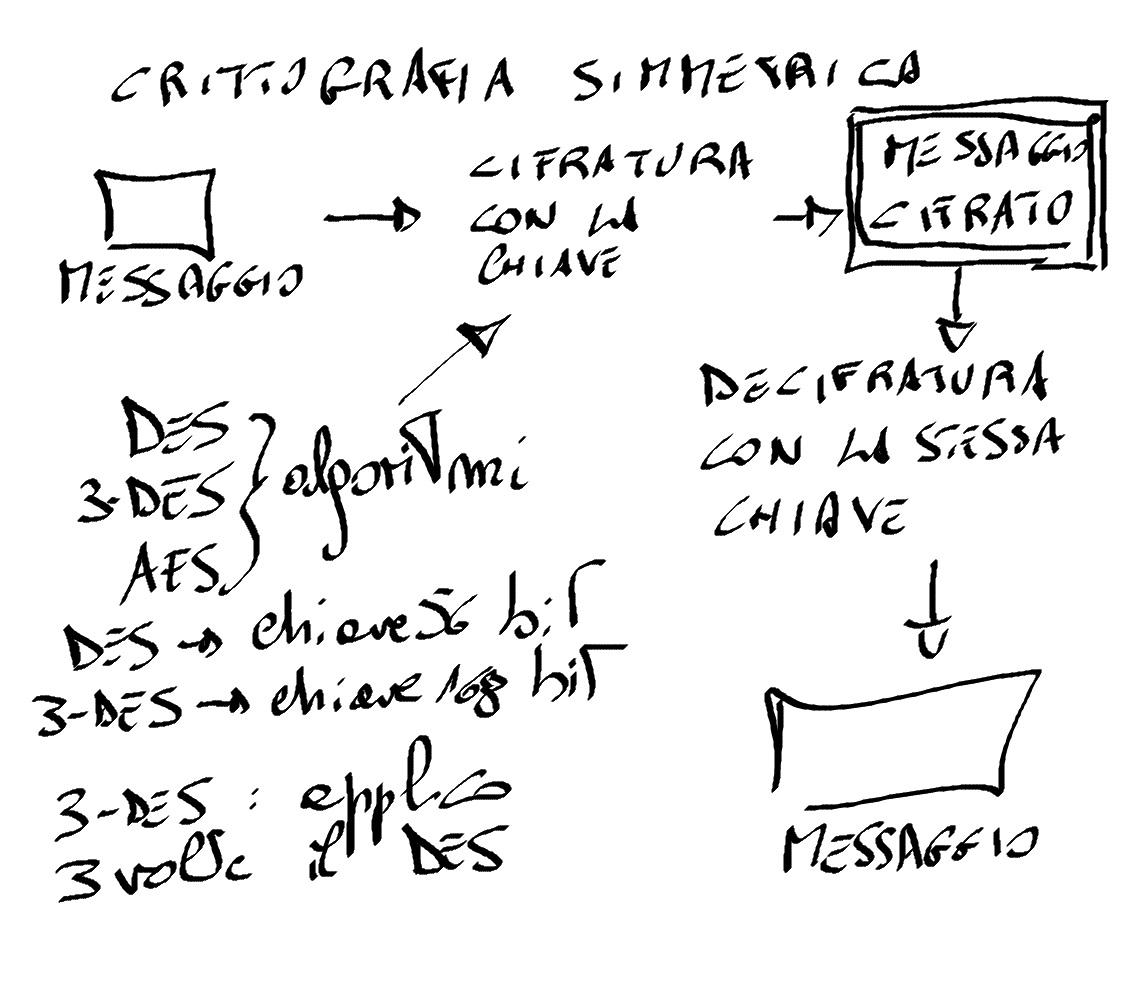 CRITTOGRAFIA SIMMETRICA
MESSAGGIO
CIFRATURA
CON LA
CHIAVE
MESSAGGIO
CIFRATO
DECIFRATURA
CON LA STESSA
CHIAVE
MESSAGGIO
DES
3-DES
AES
algoritmi
DES → chiave 56 bit
3-DES → chiave 168 bit
3-DES : applico
3 volte il DES